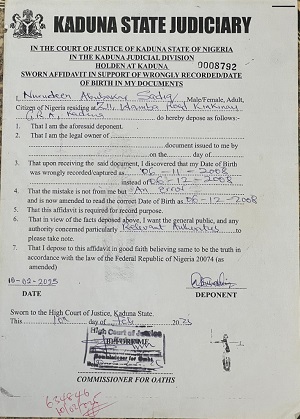 KADUNA STATE JUDICIARY
IN THE COURT OF JUSTICE OF KADUNA STATE OF NIGERIA
IN THE KADUNA JUDICIAL DIVISION
HOLDEN AT KADUNA 0008792
SWORN AFFIDAVIT IN SUPPORT OF WRONGLY RECORDED/DATE
OF BIRTH IN MY DOCUMENTS
I, Nurudeen Abubakar Sadiq Male/Female, Adult,
Citizen of Nigeria residing at Wamba Road Kinkinau
G.R.A, Kaduna do hereby depose as follows:-
1. That I am the aforesaid deponent.
2. That I am the legal owner of
document issued to me by
on the day of
3. That upon receiving the said document, I discovered that my Date of Birth
was wrongly recorded/captured as 06-11-2008
instead of 06-12-2008
4. That the mistake is not from me but An error
and is now amended to read the correct Date of Birth as 06-12-2008
5. That this affidavit is required for record purpose.
6. That in view of the facts deposed above, I want the general public, and any
authority concerned particularly Relevant Authorities to
please take note.
7. That I depose to this affidavit in good faith believing same to be the truth in
accordance with the law of the Federal Republic of Nigeria 20074 (as
amended)
10-02-2025
DATE DEPONENT
Sworn to the High Court of Justice, Kaduna State.
This 10th day of Feb 2025
High Court of Justice
BEFORE ME
Commissioner for Oaths
COMMISSIONER FOR OATHS
10/02/25